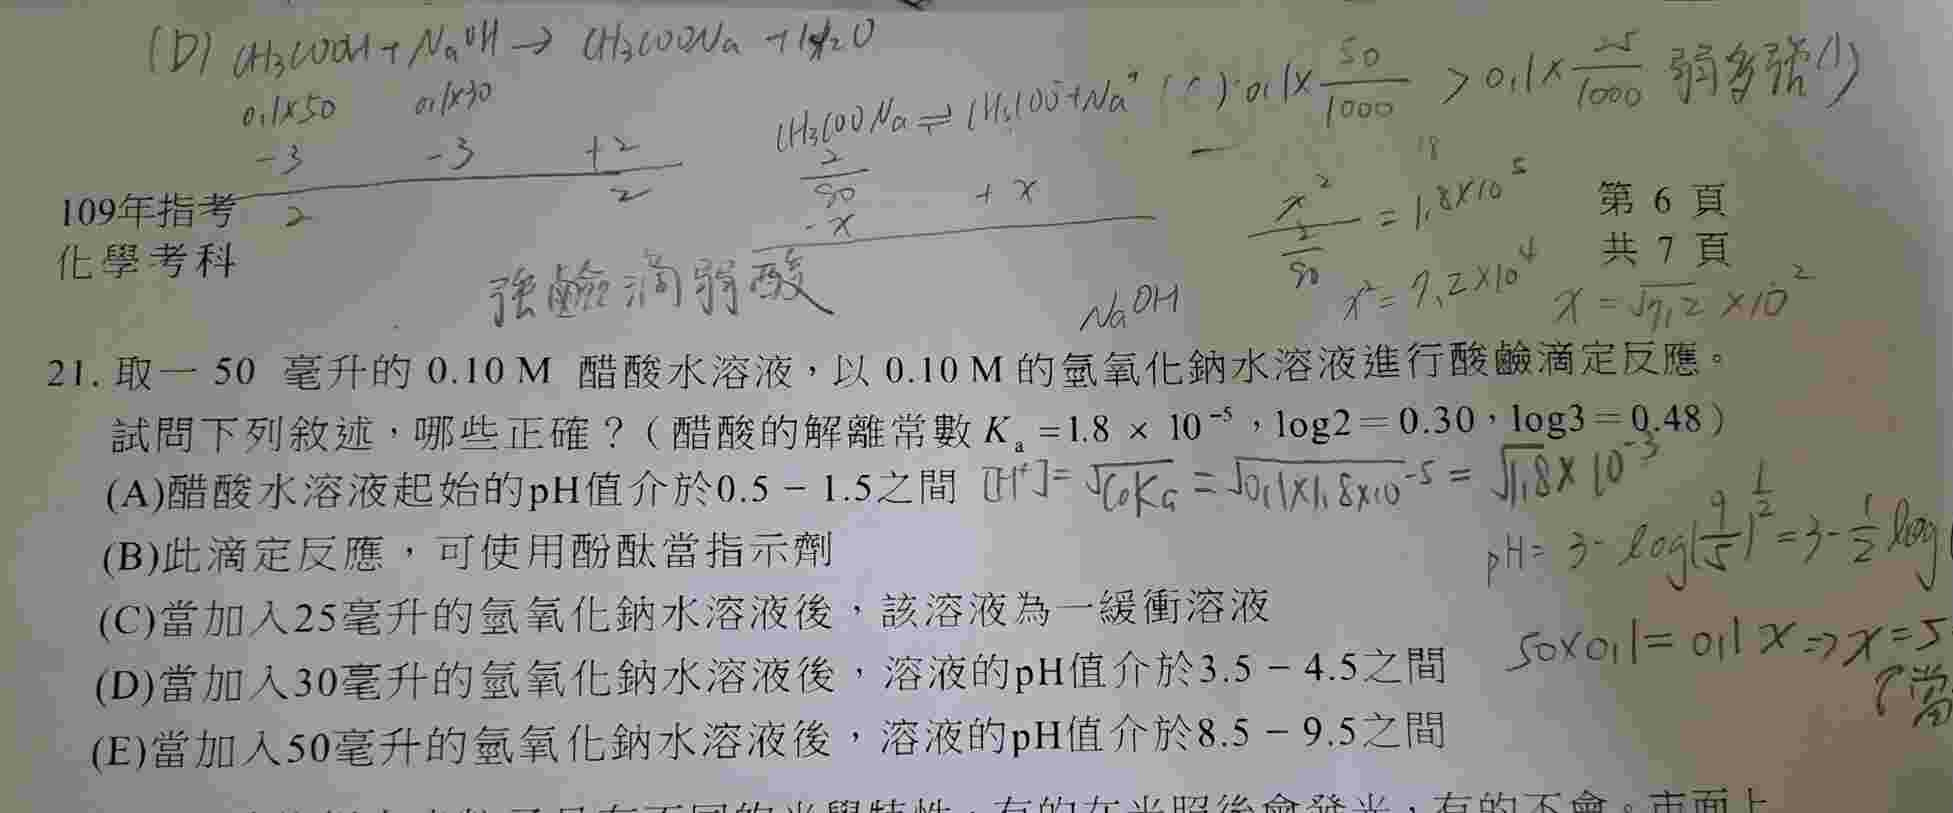 (D) CH₃COOH + NaOH → CH₃COONa + H₂O
0.1×50 0.1×30
-3 -3 +2
2 2
CH₃COONa ⇌ CH₃COO⁻ + Na⁺
2/80 + x
-x
(C) 0.1 × 50/1000 > 0.1 × 25/1000 弱多強少
x²/(2/80) = 1.8×10⁻⁵
x² = 7.2×10⁴ x = √7.2 ×10⁻²
109年指考
化學考科
第 6 頁
共 7 頁
強鹼滴弱酸
NaOH
21. 取一 50 毫升的 0.10 M 醋酸水溶液，以 0.10 M 的氫氧化鈉水溶液進行酸鹼滴定反應。
試問下列敘述，哪些正確？（醋酸的解離常數 Kₐ =1.8 × 10⁻⁵，log2＝0.30，log3＝0.48）
(A)醋酸水溶液起始的pH值介於0.5－1.5之間 [H⁺]= √C₀Ka = √0.1×1.8×10⁻⁵ = √1.8×10⁻³
pH= 3- log(9/5)^½ =3- ½ log(
(B)此滴定反應，可使用酚酞當指示劑
(C)當加入25毫升的氫氧化鈉水溶液後，該溶液為一緩衝溶液
50×0.1= 0.1x ⇒ x=5
(D)當加入30毫升的氫氧化鈉水溶液後，溶液的pH值介於3.5－4.5之間
當
(E)當加入50毫升的氫氧化鈉水溶液後，溶液的pH值介於8.5－9.5之間